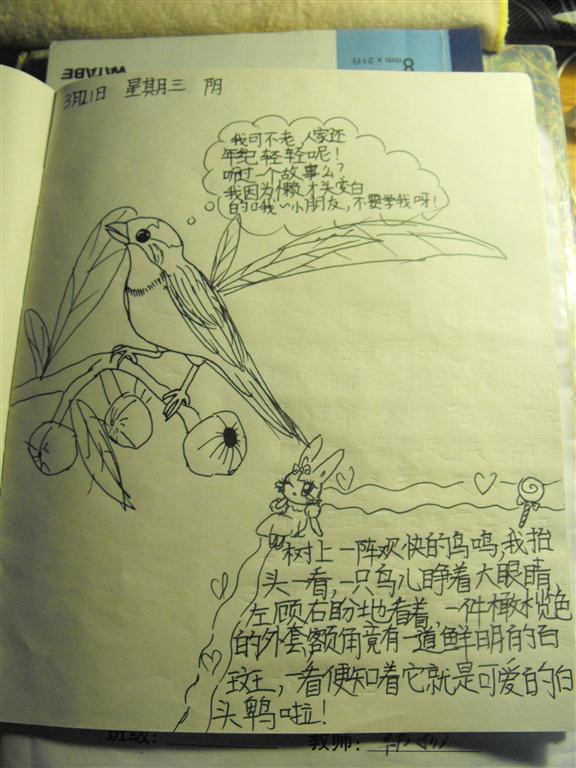 WATABE
8 mm x 21行
3月21日 星期三 阴
我可不老,人家还
年纪轻轻呢!
听过一个故事么?
我因为懒才头变白
的哦~小朋友,不要学我呀!
树上一阵欢快的鸟鸣,我抬
头一看,一只鸟儿睁着大眼睛,
左顾右盼地看着,一件橄榄色
的外套额角竟有一道鲜明的白
斑,一看便知着它就是可爱的白
头鹎啦!
班级:
教师: